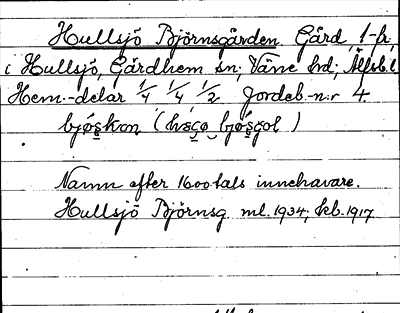 Hullsjö Björnsgården. Gård 1-fr.
i Hullsjö, Gärdhem sn; Väne hd; Älfsb. l.
Hem.-delar 1/4 1/4 1/2 Jordeb.-n:r 4.
Namn efter 1600tals innehavare.
Hullsjö Björnsg. ml. 1934; kb. 1917